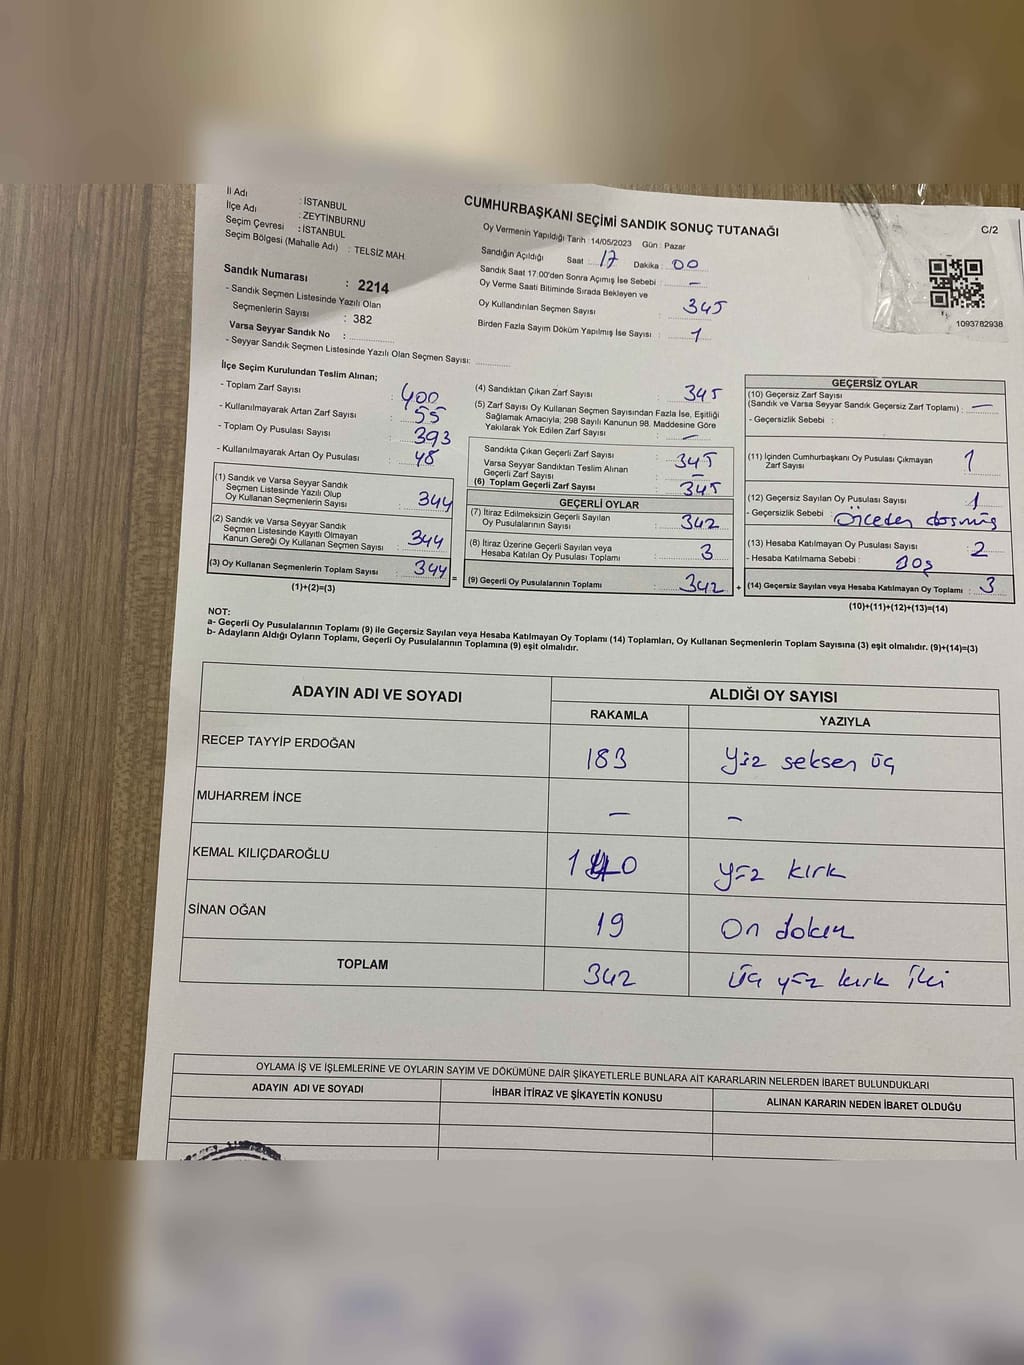 İl Adı : İSTANBUL
İlçe Adı : ZEYTİNBURNU
Seçim Çevresi : İSTANBUL
Seçim Bölgesi (Mahalle Adı) : TELSİZ MAH.
Sandık Numarası : 2214
- Sandık Seçmen Listesinde Yazılı Olan
Seçmenlerin Sayısı : 382
Varsa Seyyar Sandık No :
- Seyyar Sandık Seçmen Listesinde Yazılı Olan Seçmen Sayısı:
CUMHURBAŞKANI SEÇİMİ SANDIK SONUÇ TUTANAĞI
C/2
Oy Vermenin Yapıldığı Tarih : 14/05/2023 Gün : Pazar
Sandığın Açıldığı Saat : 17 Dakika : 00
Sandık Saat 17.00'den Sonra Açımış İse Sebebi : –
Oy Verme Saati Bitiminde Sırada Bekleyen ve
Oy Kullandırılan Seçmen Sayısı : 345
Birden Fazla Sayım Döküm Yapılmış İse Sayısı : 1
1093782938
İlçe Seçim Kurulundan Teslim Alınan;
- Toplam Zarf Sayısı : 400
- Kullanılmayarak Artan Zarf Sayısı : 55
- Toplam Oy Pusulası Sayısı : 393
- Kullanılmayarak Artan Oy Pusulası : 48
(1) Sandık ve Varsa Seyyar Sandık
Seçmen Listesinde Yazılı Olup
Oy Kullanan Seçmenlerin Sayısı : 344
(2) Sandık ve Varsa Seyyar Sandık
Seçmen Listesinde Kayıtlı Olmayan
Kanun Gereği Oy Kullanan Seçmen Sayısı : 344
(3) Oy Kullanan Seçmenlerin Toplam Sayısı : 344
(1)+(2)=(3)
=
(4) Sandıktan Çıkan Zarf Sayısı : 345
(5) Zarf Sayısı Oy Kullanan Seçmen Sayısından Fazla İse, Eşitliği
Sağlamak Amacıyla; 298 Sayılı Kanunun 98. Maddesine Göre
Yakılarak Yok Edilen Zarf Sayısı : –
Sandıkta Çıkan Geçerli Zarf Sayısı : 345
Varsa Seyyar Sandıktan Teslim Alınan
Geçerli Zarf Sayısı : –
(6) Toplam Geçerli Zarf Sayısı : 345
GEÇERLİ OYLAR
(7) İtiraz Edilmeksizin Geçerli Sayılan
Oy Pusulalarının Sayısı : 342
(8) İtiraz Üzerine Geçerli Sayılan veya
Hesaba Katılan Oy Pusulası Toplamı : 3
(9) Geçerli Oy Pusulalarının Toplamı : 342
+
GEÇERSİZ OYLAR
(10) Geçersiz Zarf Sayısı
(Sandık ve Varsa Seyyar Sandık Geçersiz Zarf Toplamı) : –
- Geçersizlik Sebebi :
(11) İçinden Cumhurbaşkanı Oy Pusulası Çıkmayan
Zarf Sayısı : 1
(12) Geçersiz Sayılan Oy Pusulası Sayısı : 1
- Geçersizlik Sebebi :
(13) Hesaba Katılmayan Oy Pusulası Sayısı : 2
- Hesaba Katılmama Sebebi : Boş
(14) Geçersiz Sayılan veya Hesaba Katılmayan Oy Toplamı : 3
(10)+(11)+(12)+(13)=(14)
NOT:
a- Geçerli Oy Pusulalarının Toplamı (9) ile Geçersiz Sayılan veya Hesaba Katılmayan Oy Toplamı (14) Toplamları, Oy Kullanan Seçmenlerin Toplam Sayısına (3) eşit olmalıdır. (9)+(14)=(3)
b- Adayların Aldığı Oyların Toplamı, Geçerli Oy Pusulalarının Toplamına (9) eşit olmalıdır.
ADAYIN ADI VE SOYADI ALDIĞI OY SAYISI
RAKAMLA YAZIYLA
RECEP TAYYİP ERDOĞAN 183 Yüz seksen üç
MUHARREM İNCE – –
KEMAL KILIÇDAROĞLU 140 yüz kırk
SİNAN OĞAN 19 On dokuz
TOPLAM 342 üç yüz kırk iki
OYLAMA İŞ VE İŞLEMLERİNE VE OYLARIN SAYIM VE DÖKÜMÜNE DAİR ŞİKAYETLERLE BUNLARA AİT KARARLARIN NELERDEN İBARET BULUNDUKLARI
ADAYIN ADI VE SOYADI İHBAR İTİRAZ VE ŞİKAYETİN KONUSU ALINAN KARARIN NEDEN İBARET OLDUĞU